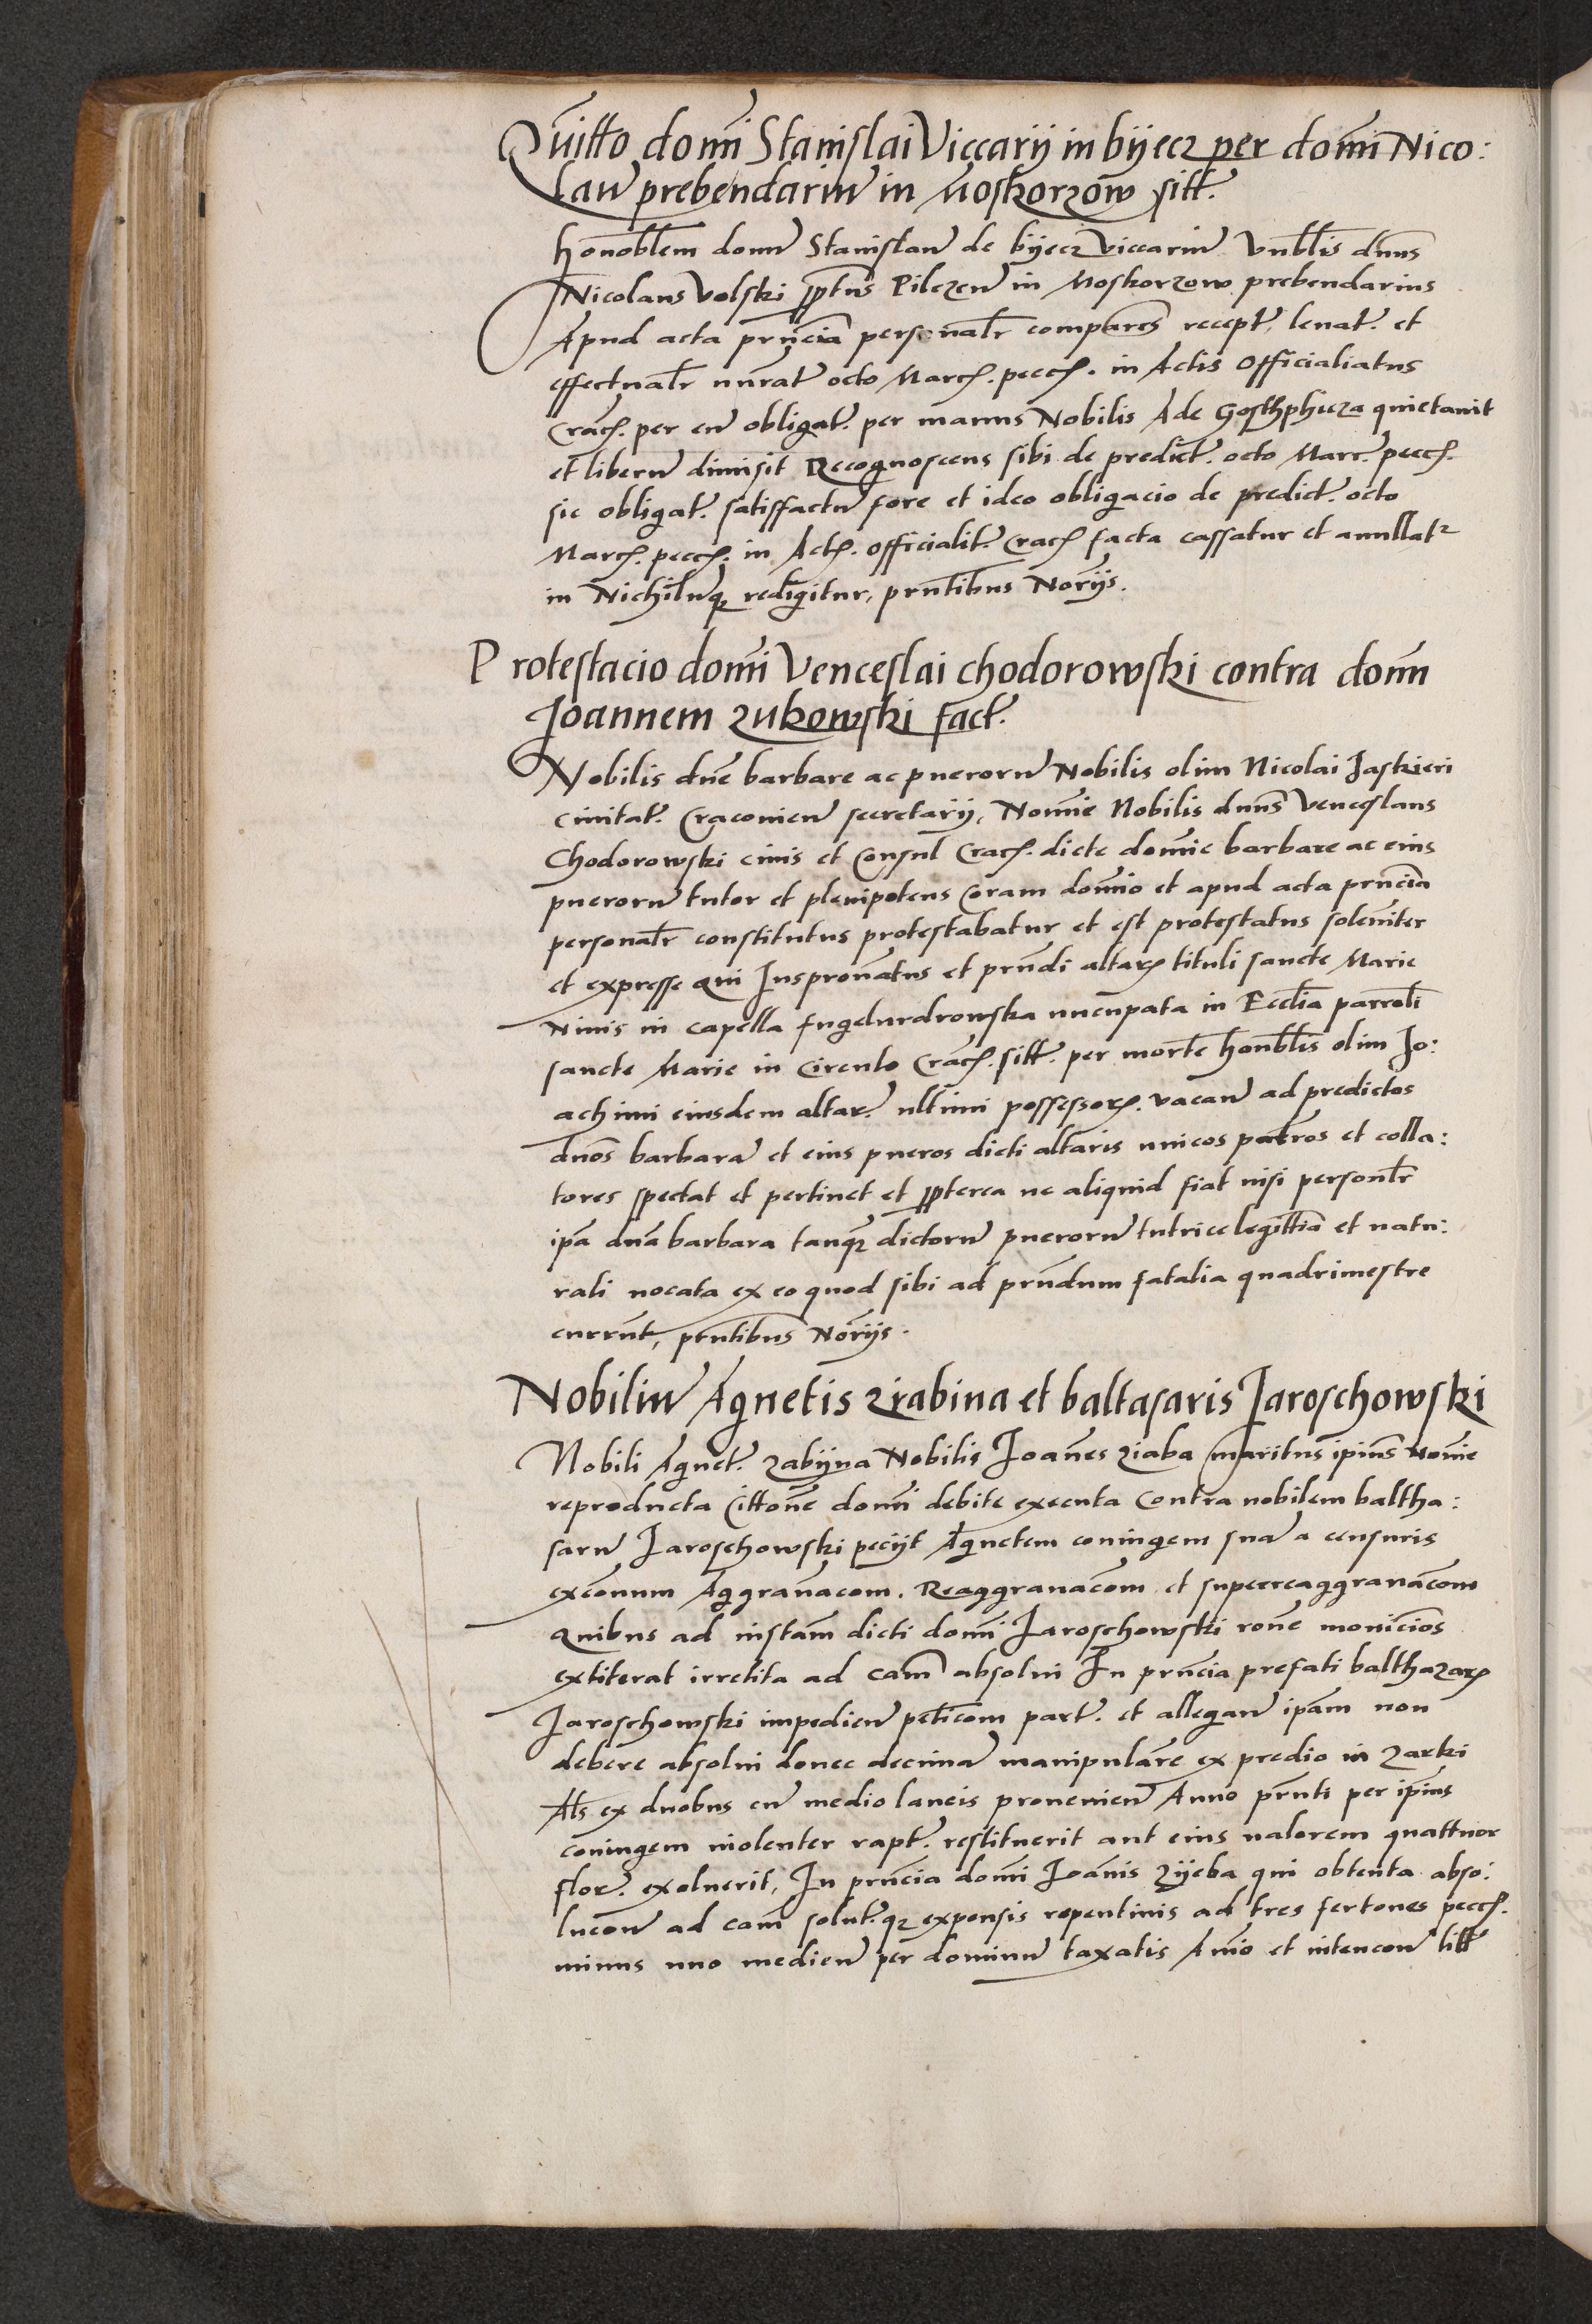 Quitto domi Stanislai Viccarij in bijecz per domi Nico:
lau prebendariu in Moskorzow sitt.
honoblem domu Stanislau de bijecz viccariu Vnblis dnns
Nicolaus Volski pptus Pilczen in Moskorzow prebendarius
Apud acta pruncia personalr compares recept. leuat. et
effectualr nurat octo March. pecch. in Actis Officialiatus
Crach. per eu obligat. per manus Nobilis Ade quietauit
et liberu dimisit Recognoscens sibi de predict. octo Marc. pecch.
sic obligat. satisffactu fore et ideo obligacio de predict. octo
March. pecch. in Acth. officialit. Crach facta cassatur et anullatr
in Nichiluq redigitur, prntibus Norijs.
Protestacio domi Venceslai chodorowski contra domn
Joannem zukowski fact.
Nobilis dne barbare ac pueroru Nobilis olim Nicolai Jaskieri
ciuitat. Cracouien secretarij, Nomie Nobilis dnns Venceslaus
Chodorowski ciuis et Consul Crach. dicte domnie barbare ac eius
pueroru tutor et plenipotens Coram domnio et apud acta pruncia
personalr constitutus protestabatur et est protestatus solemniter
et expresse qui Juspronatus et prundi altarz tituli sancte Marie
Niuis in capella nuncupata in Ecclia parroli
sancte Marie in Circulo Crach. sitt. per morte honblis olim Jo:
achimi eiusdem altar. ultimi possessorz. vacan ad predictos
dnos barbara et eius pueros dicti altaris unicos patros et colla:
tores spectat et pertinet et ppterea ne aliquid fiat nisi personlr
ipa dna barbara tanqz dictoru pueroru tutrice legittia et natu:
rali uocata ex eo quod sibi ad prundum fatalia quadrimestre
currunt, prntibus Norijs.
Nobiliu Agnetis zrabina et baltasaris Jaroschowski
Nobili Agnet. zabijna Nobilis Joanes ziaba maritus ipius nomie
reproducta Cittone domi debite executa contra nobilem baltha:
saru Jaroschowski pecijt Agnetem coniugem sua a censuris
excomum Aggrauacom. Reaggrauacom et superreaggrauacom
quibus ad instam dicti domi Jaroschowski rone monicios
extiterat irretita ad cam absolui In pruncia prefati balthazarz
Jaroschowski impedien peticom part. et allegan ipam non
debere absolui donec decima manipulare ex predio in zarki
Als ex duobus cu medio laneis prouenien Anno prnti per ipius
coniugem uiolenter rapt. restituerit aut eius ualorem quattuor
flor. exoluerit, In pruncia domi Joanis zijeba qui obtenta abso:
lucou ad cam solut.qz expensis repentinis ad tres fertones pecch.
minus uno medien per dominu taxatis Animo et intencou litt